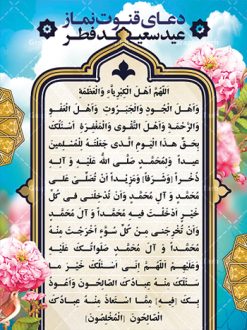 دعای قنوت نماز
عید سعید فطر
اَللّهُمَّ اَهْلَ الْکِبْرِیاَّءِ وَالْعَظَمَةِ
وَاَهْلَ الْجُودِ وَالْجَبَرُوتِ وَاَهْلَ الْعَفْوِ
وَالرَّحْمَةِ وَاَهْلَ التَّقْوی وَالْمَغْفِرَةِ اَسْئَلُکَ
بِحَقِّ هذَا الْیَوْمِ الَّذی جَعَلْتَهُ لِلْمُسْلِمینَ
عیداً وَلِمُحَمَّدٍ صَلَّی اللّهُ عَلَیْهِ وَ آلِهِ
ذُخْراً (وَشَرَفًا) وَمَزیْداً اَنْ تُصَلِّیَ عَلی
مُحَمَّدٍ وَ آلِ مُحَمَّدٍ وَاَنْ تُدْخِلَنی فی کُلِّ
خَیْرٍ اَدْخَلْتَ فیهِ مُحَمَّداً وَ آلَ مُحَمَّدٍ
وَاَنْ تُخْرِجَنی مِنْ کُلِّ سُوَّءٍ اَخْرَجْتَ مِنْهُ
مُحَمَّداً وَ آلَ مُحَمَّدٍ صَلَواتُکَ عَلَیْهِ
وَعَلَیْهِمْ اَللّهُمَّ اِنّی اَسْئَلُکَ خَیْرَ ما
سَئَلَکَ مِنْهُ عِبادُکَ الصّالِحُونَ وَاَعُوذُ
بِکَ (فِیهِ) مِمَّا اسْتَعاذَ مِنْهُ عِبادُکَ
الصّالِحُونَ (الْمُخْلَصُونَ)